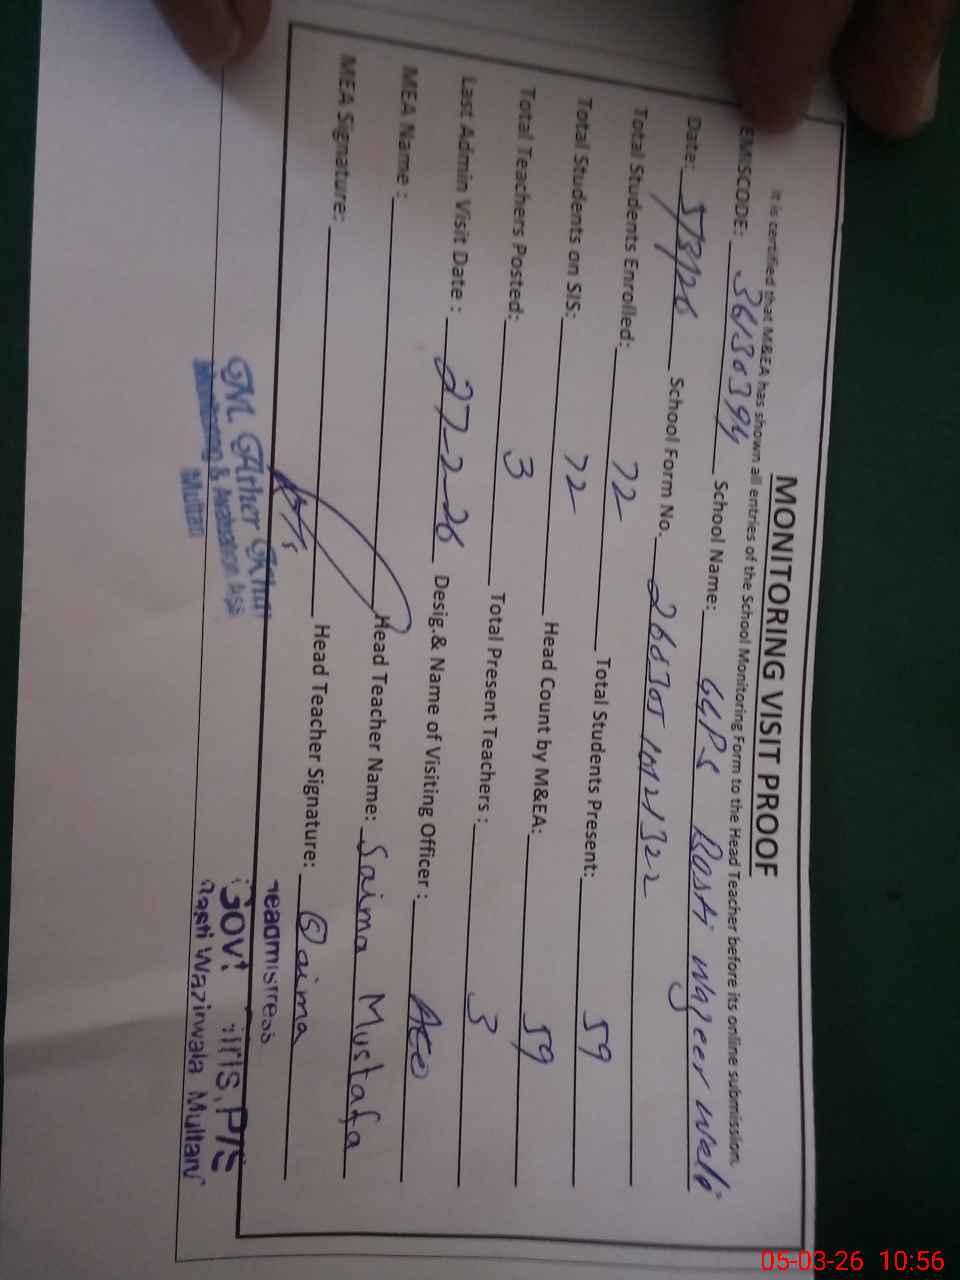 MONITORING VISIT PROOF
It is certified that M&EA has shown all entries of the School Monitoring Form to the Head Teacher before its online submission.
EMISCODE: 36130394 School Name: GGPS Basti wazeer wala
Date: 5/3/26 School Form No. 268305
Total Students Enrolled: 72 Total Students Present: 59
Total Students on SIS: 72 Head Count by M&EA: 59
Total Teachers Posted: 3 Total Present Teachers : 3
Last Admin Visit Date : 27-2-26 Desig.& Name of Visiting Officer : AEO
MEA Name : Head Teacher Name: Saima Mustafa
MEA Signature: Head Teacher Signature: Saima
M. Ather Khan
Monitoring &
Multan
Headmistress
Govt Girls P/S
Basti Wazirwala Multan
05-03-26 10:56